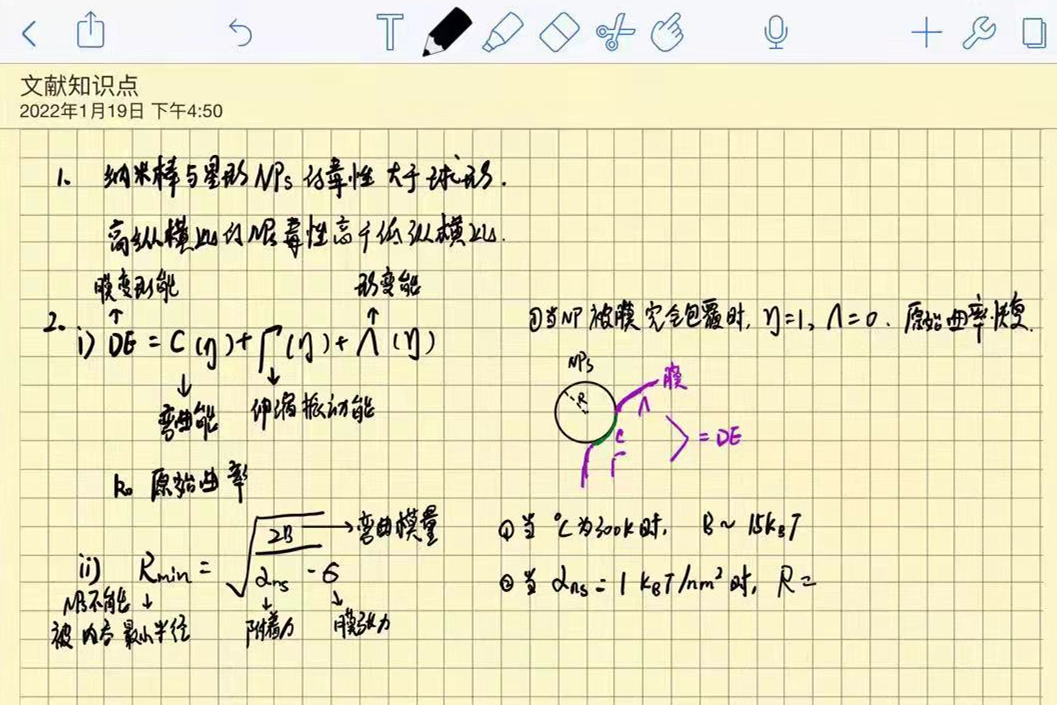 文献知识点
2022年1月19日 下午4:50
1、纳米棒与星形NPs的毒性大于球形.
高纵横比的NPs毒性高于低纵横比.
膜变形能
形变能
2. i) DE = C(η)+Γ(η)+Λ(η)
弯曲能
伸缩振动能
k₀ 原始曲率
①当NP被膜完全包覆时, η=1, Λ=0. 原始曲率恢复.
NPs
R
膜
Λ
C
Γ
= DE
ii) Rmin = √(2B / (αns - σ))
弯曲模量
NPs不能
被内吞 最小半径
附着力
膜张力
①当 ℃为300K时, B ~ 15kBT
②当 αns = 1 kBT/nm² 时, R =